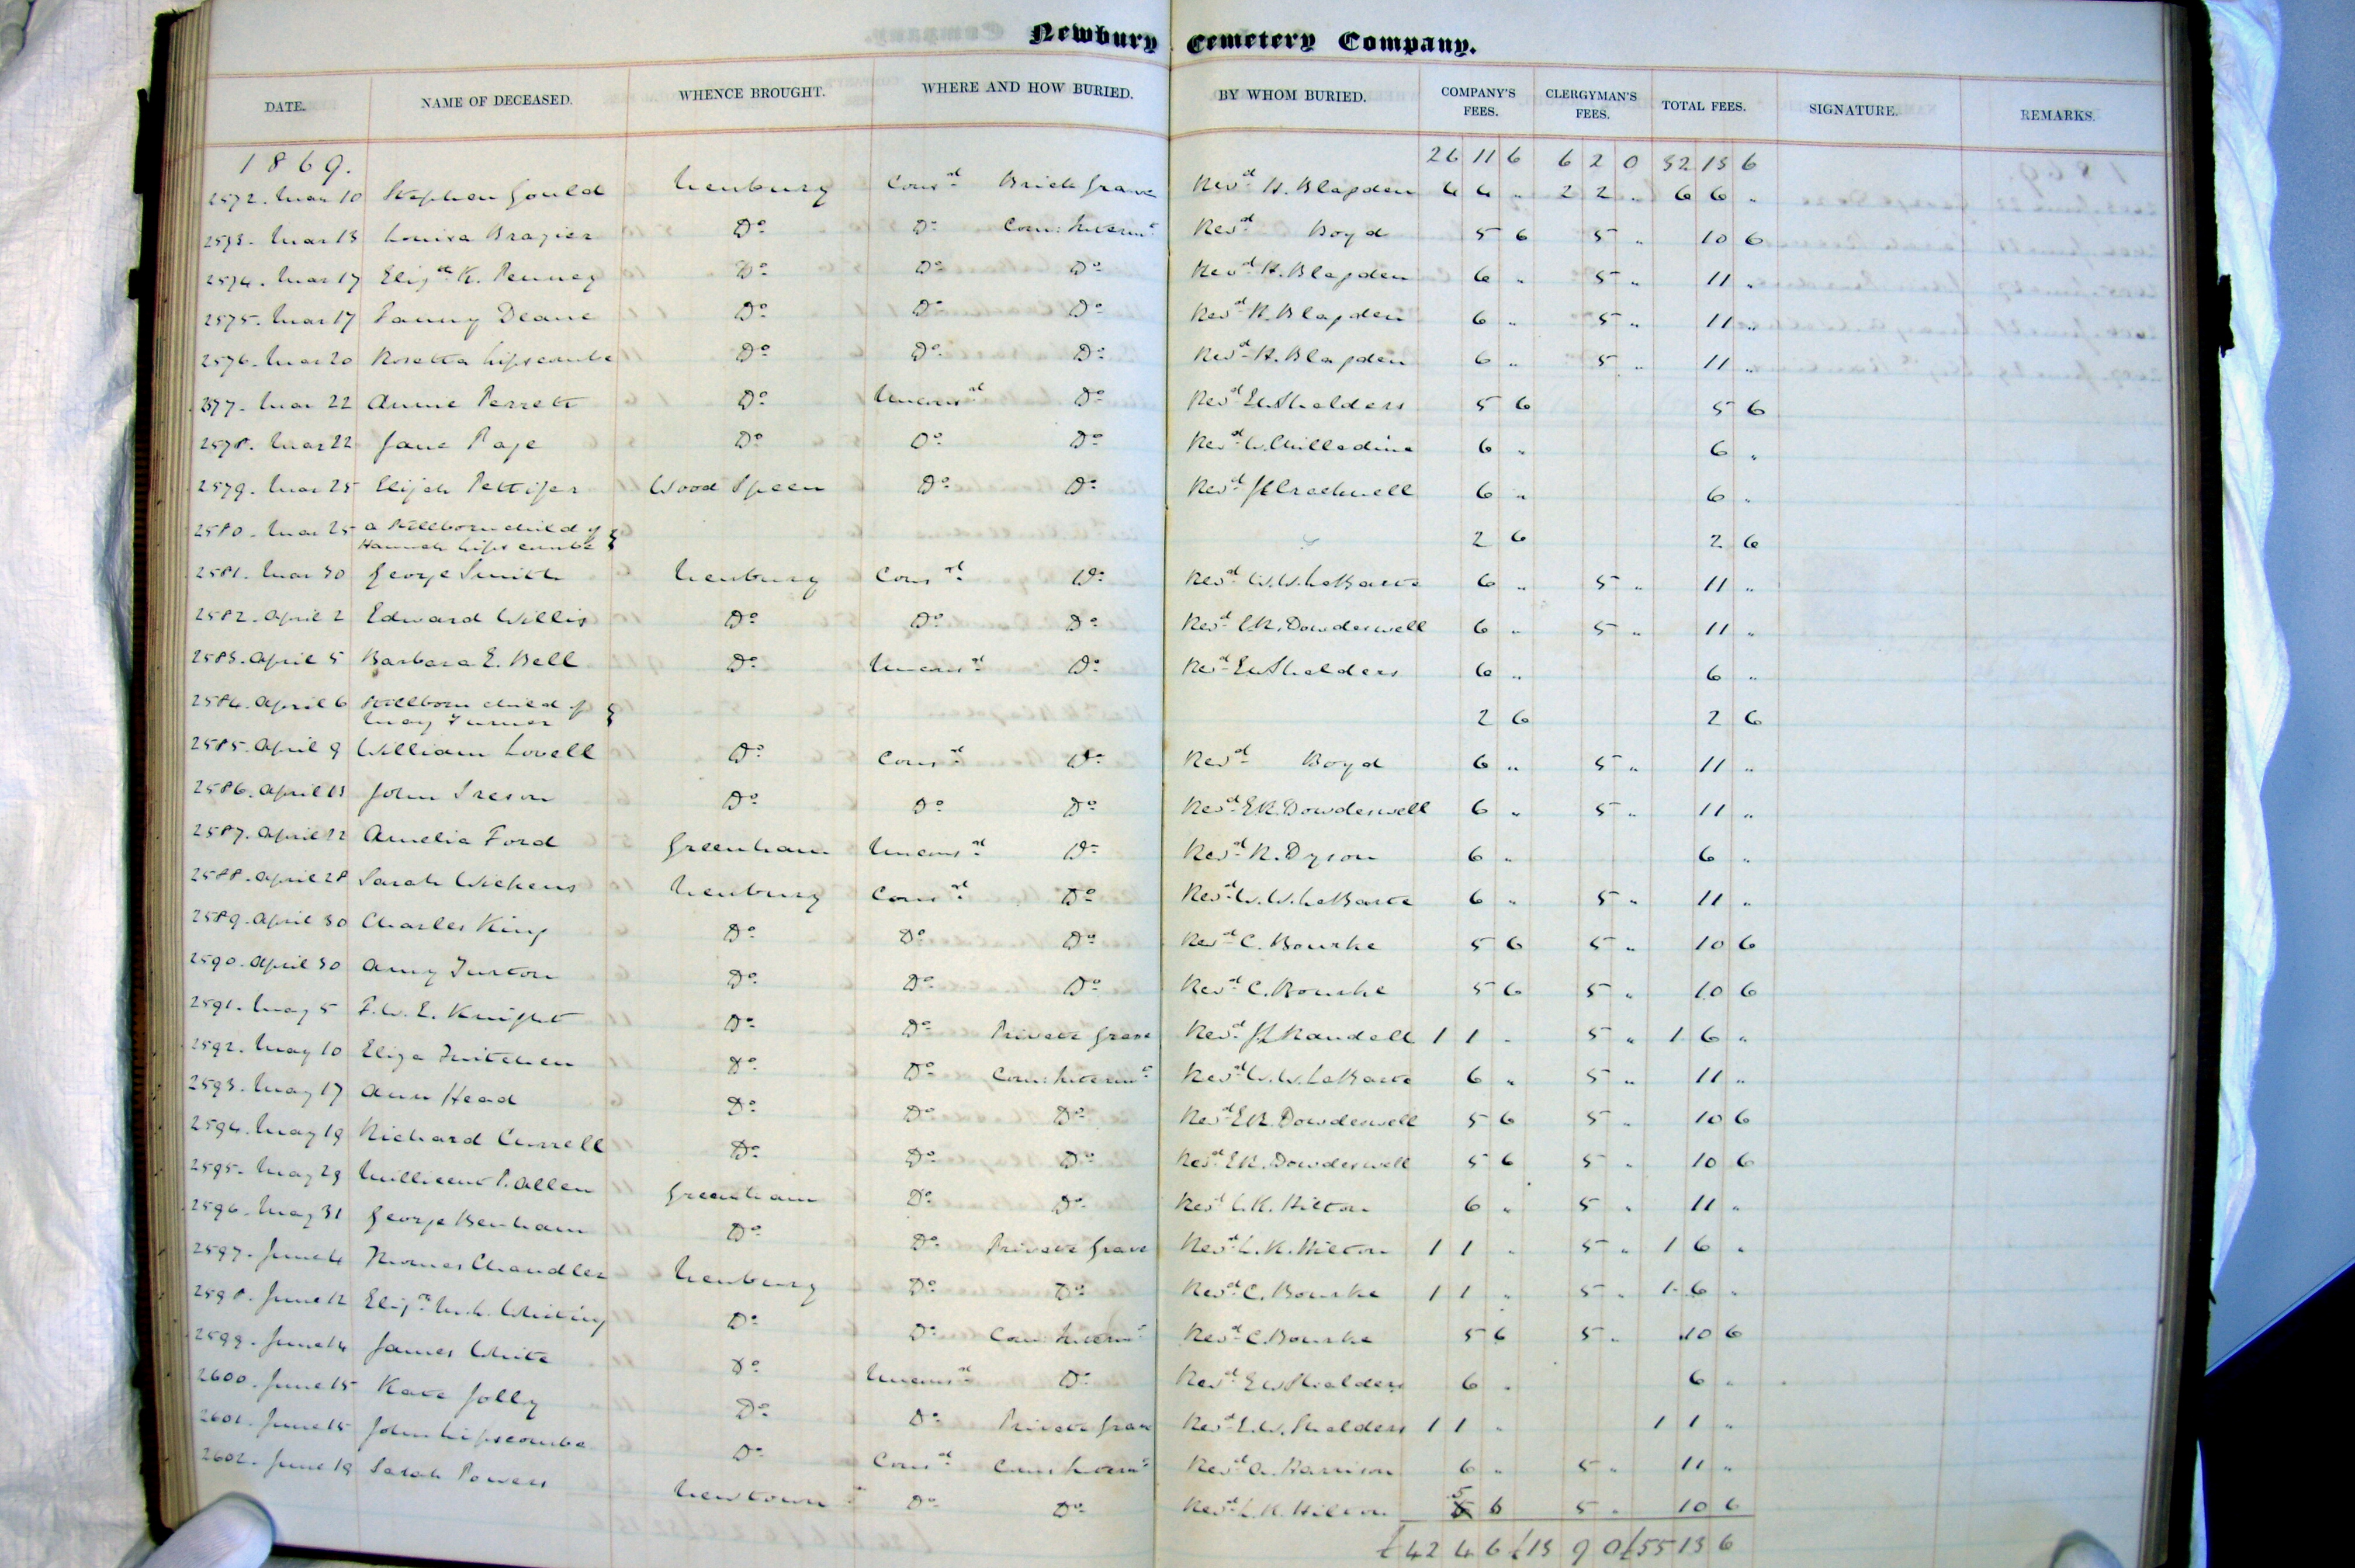 Newbury Cemetery Company.
DATE. NAME OF DECEASED. WHENCE BROUGHT. WHERE AND HOW BURIED. BY WHOM BURIED. COMPANY'S FEES. CLERGYMAN'S FEES. TOTAL FEES. SIGNATURE. REMARKS.
1869. 26 11 6 6 2 0 32 13 6
2572. Mar 10 Stephen Gould Newbury Cons.d Brick Grave Rev.d H. Blagden 4 4 " 2 2 " 6 6 "
2573. Mar 13 Louisa Brazier Do Do Com: Interm.t Rev.d Boyd 5 6 5 " 10 6
2574. Mar 17 Eliz.th K. Penney Do Do Do Rev.d H. Blagden 6 " 5 " 11 "
2575. Mar 17 Fanny Deane Do Do Do Rev.d H. Blagden 6 " 5 " 11 "
2576. Mar 20 Rosetta Lipscombe Do Do Do Rev.d H. Blagden 6 " 5 " 11 "
2577. Mar 22 Annie Perrett Do Uncons.d Do Rev.d E.W. Shalders 5 6 5 6
2578. Mar 22 Jane Page Do Do Do Rev.d 6 " 6 "
2579. Mar 25 Elijah Pettifer Wood Speen Do Do Rev.d 6 " 6 "
2580. Mar 25 a Stillborn child of Hannah Lipscombe } 2 6 2 6
2581. Mar 30 George Smith Newbury Cons.d Do Rev.d W.W. 6 " 5 " 11 "
2582. April 2 Edward Willis Do Do Do Rev.d E.R. Dowdeswell 6 " 5 " 11 "
2583. April 5 Barbara E. Bell Do Uncons.d Do Rev.d E.W. Shalders 6 " 6 "
2584. April 6 Stillborn child of Mary Turner } 2 6 2 6
2585. April 9 William Lovell Do Cons.d Do Rev.d Boyd 6 " 5 " 11 "
2586. April 13 John Ireson Do Do Do Rev.d E.R. Dowdeswell 6 " 5 " 11 "
2587. April 22 Amelia Ford Greenham Uncons.d Do Rev.d R. Dyson 6 " 6 "
2588. April 28 Sarah Wickens Newbury Cons.d Do Rev.d W.W. 6 " 5 " 11 "
2589. April 30 Charles King Do Do Do Rev.d C. Bourke 5 6 5 " 10 6
2590. April 30 Amy Turton Do Do Do Rev.d C. Bourke 5 6 5 " 10 6
2591. May 5 F.W.E. Knight Do Do Private Grave Rev.d J.L. Randell 1 1 " 5 " 1 6 "
2592. May 10 Eliza Twitchen Do Do Com: Interm.t Rev.d W.W. 6 " 5 " 11 "
2593. May 17 Ann Head Do Do Do Rev.d E.R. Dowdeswell 5 6 5 " 10 6
2594. May 19 Richard Currell Do Do Do Rev.d E.R. Dowdeswell 5 6 5 " 10 6
2595. May 29 Millicent P. Allen Greenham Do Do Rev.d L.R. Hilton 6 " 5 " 11 "
2596. May 31 George Benham Do Do Private Grave Rev.d L.R. Hilton 1 1 " 5 " 1 6 "
2597. June 4 Thomas Chandler Newbury Do Do Rev.d C. Bourke 1 1 " 5 " 1 6 "
2598. June 12 Eliz.th M.L. Whiting Do Do Com: Interm.t Rev.d C. Bourke 5 6 5 " 10 6
2599. June 14 James White Do Uncons.d Do Rev.d E.W. Shalders 6 " 6 "
2600. June 15 Kate Jolly Do Do Private Grave Rev.d E.W. Shalders 1 1 " 1 1 "
2601. June 15 John Lipscombe Do Cons.d Com: Interm.t Rev.d A. Harrison 6 " 5 " 11 "
2602. June 19 Sarah Powers Newtown Do Do Rev.d L.R. Hilton 5 6 5 " 10 6
£42 4 6 £13 9 0 £55 13 6